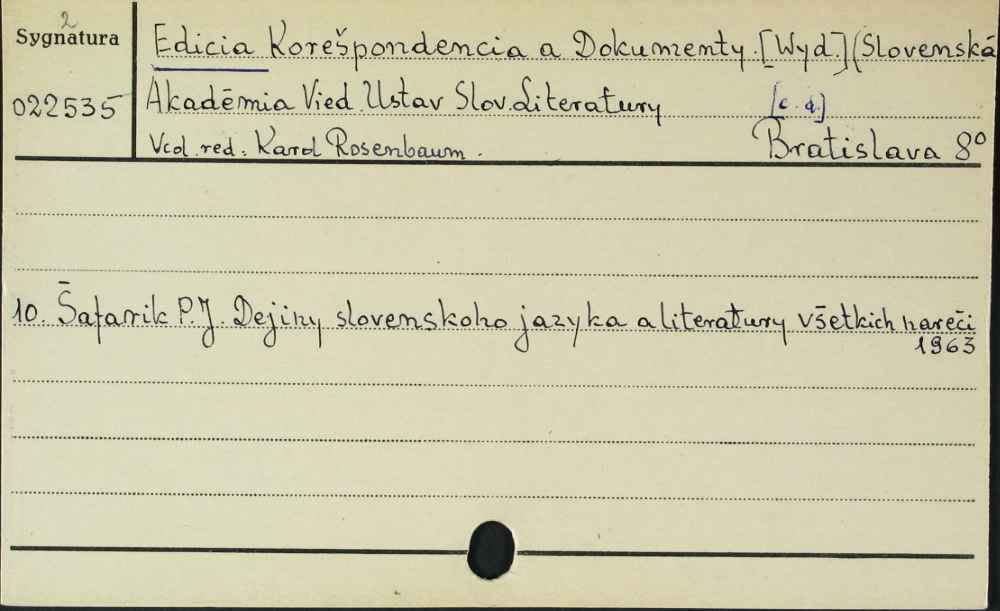 2
Sygnatura
Edicia Korešpondencia a Dokumenty. [Wyd.] (Slovenská
022535
Akadēmia Vied. Ustav Slov. Literatury [c. d.]
Ved. red. Karol Rosenbaum. Bratislava 8°
10. Šafarik P.J. Dejiny slovenskoho jazyka a literatury všetkich narečí
1963